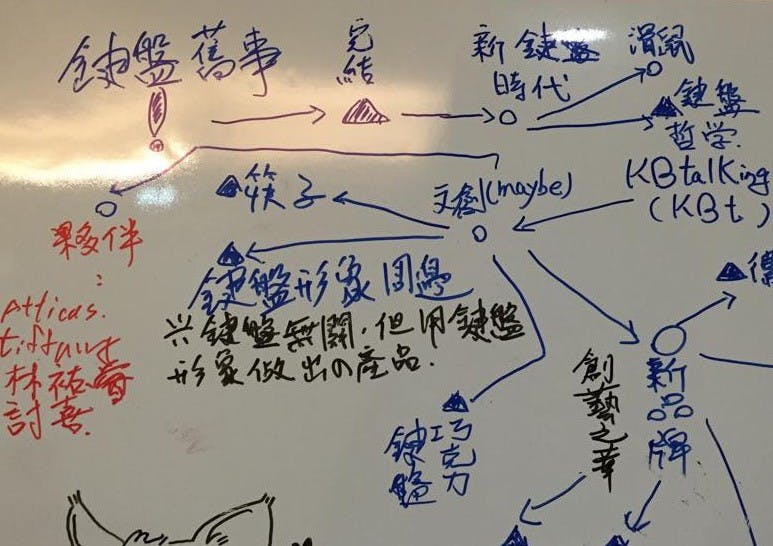 鍵盤舊事
完結
新鍵盤
時代
滑鼠
鍵盤
哲学.
KBtalKing
(KBt)
筷子
文創(maybe)
夥伴
:
鍵盤形象周邊
Atticus.
tiffany
林祐
討喜.
兴鍵盤無關,但用鍵盤
形象做出の產品.
創藝之華
新品牌
鍵盤
巧克力